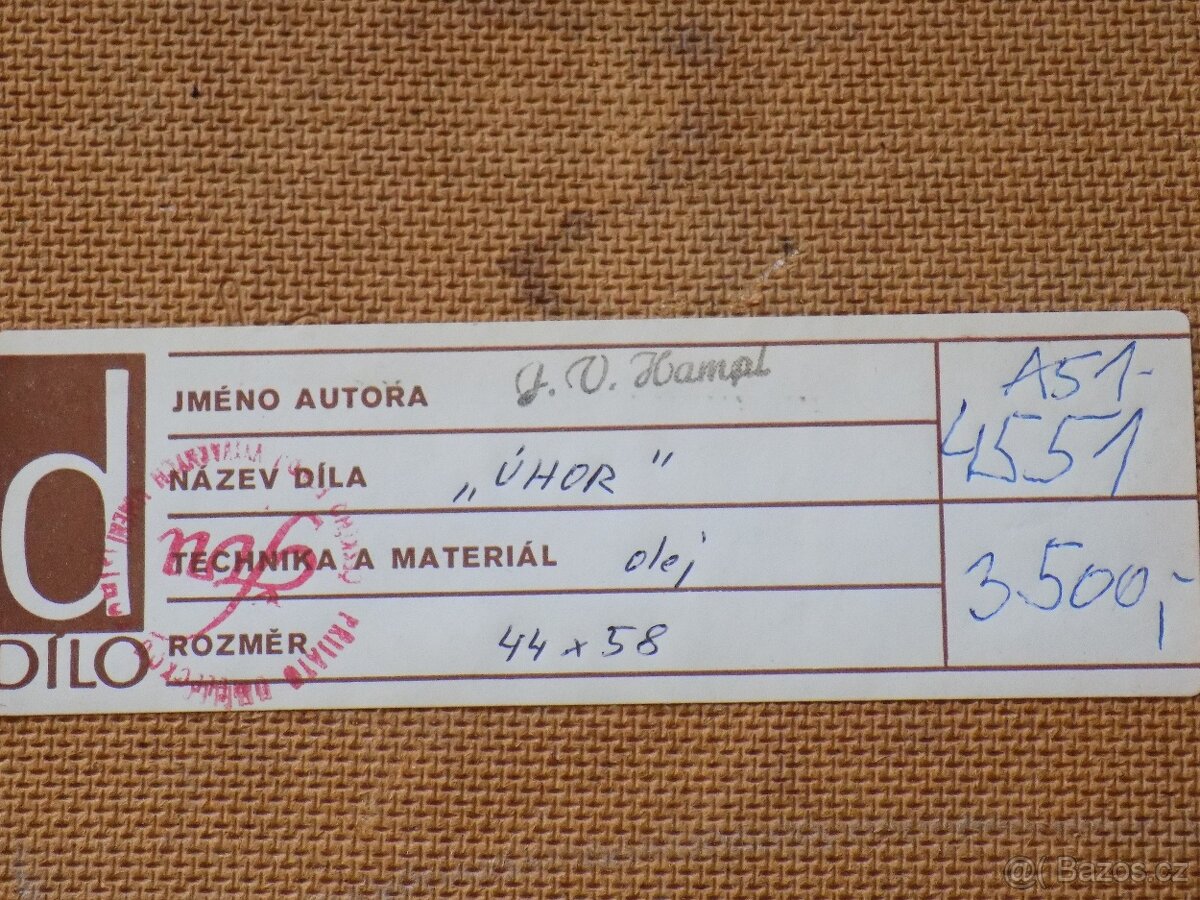 d
DÍLO
JMÉNO AUTORA J. V. Hampl
NÁZEV DÍLA „ÚHOR"
TECHNIKA A MATERIÁL olej
ROZMĚR 44 x 58
A51-
4551
3.500,-
PŘIJATO
Bazos.cz